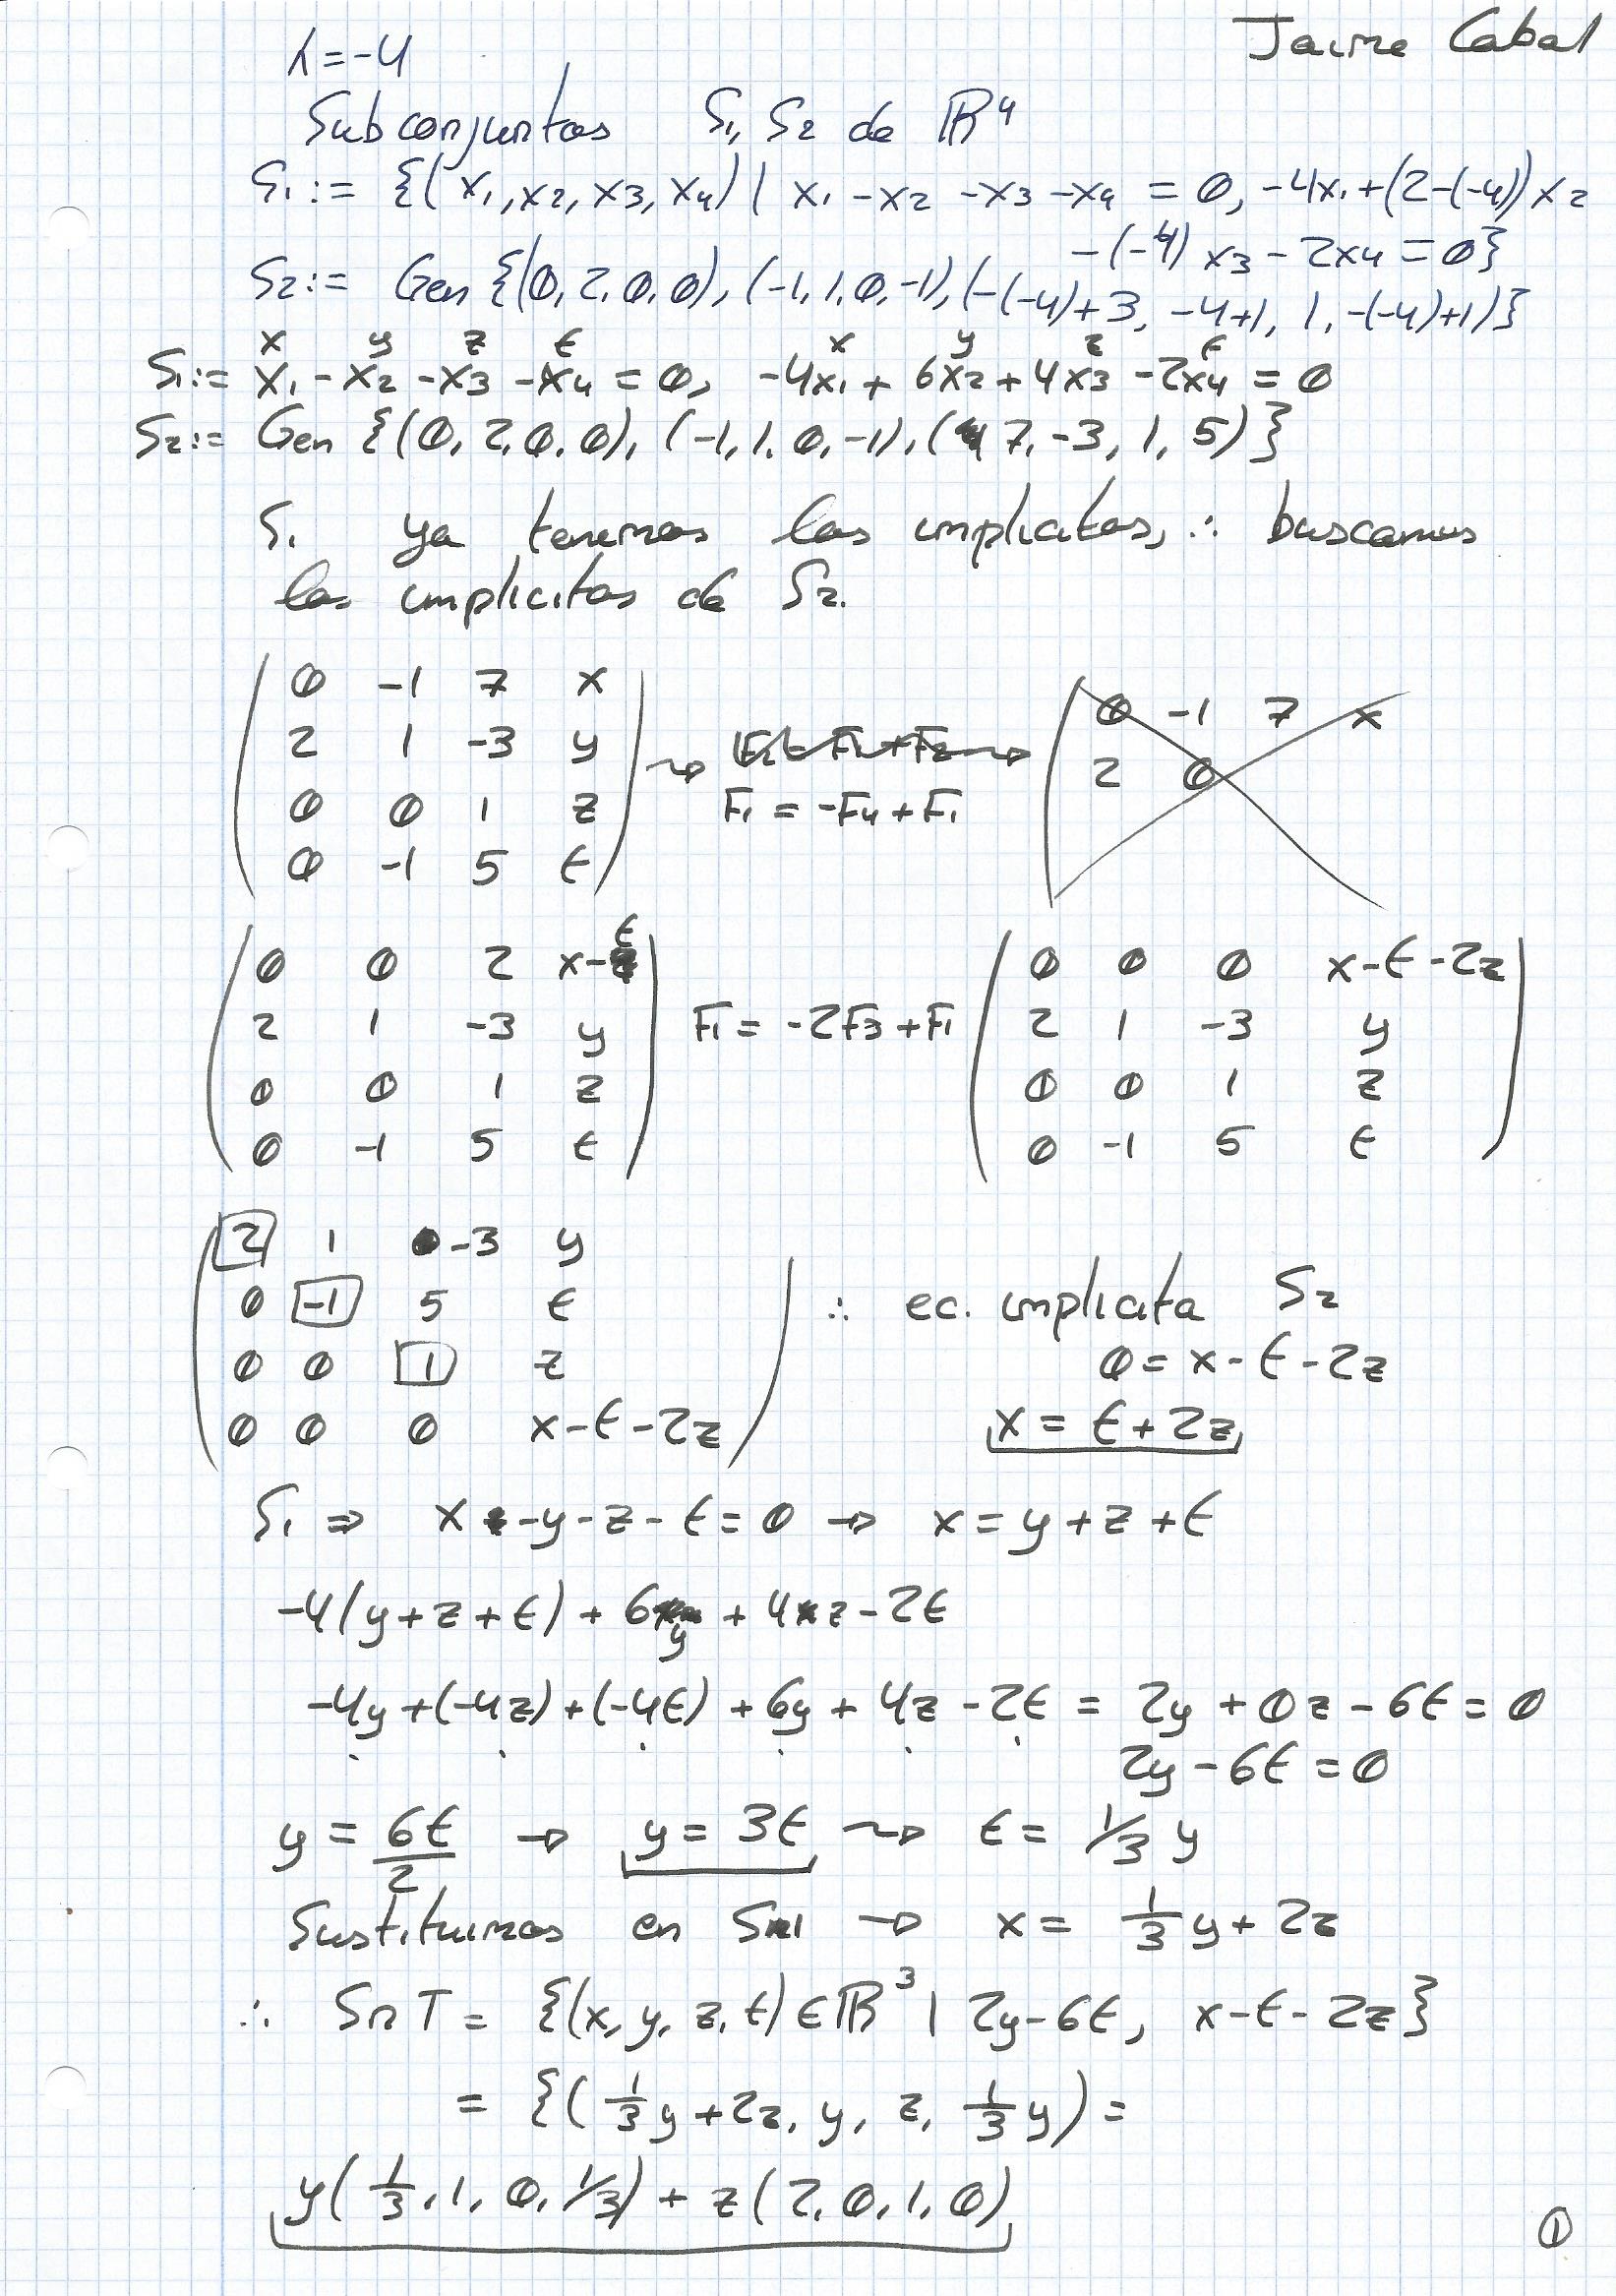 Jaime Cabal
λ=-4
Subconjuntos S₁, S₂ de ℝ⁴
S₁ := {(x₁, x₂, x₃, x₄) | x₁ - x₂ - x₃ - x₄ = 0, -4x₁ + (2-(-4))x₂
-(-4) x₃ - 2x₄ = 0}
S₂ := Gen {(0, 2, 0, 0), (-1, 1, 0, -1), (-(-4)+3, -4+1, 1, -(-4)+1)}
x y z t x y z t
S₁ := x₁ - x₂ - x₃ - x₄ = 0, -4x₁ + 6x₂ + 4x₃ - 2x₄ = 0
S₂ := Gen {(0, 2, 0, 0), (-1, 1, 0, -1), (7, -3, 1, 5)}
S₁ ya tenemos las implicitas, ∴ buscamos
las implicitas de S₂.
0 -1 7 x
2 1 -3 y
0 0 1 z
0 -1 5 t
F₁ = -F₄ + F₁
0 -1 7 x
2 0
0 0 2 x-t
2 1 -3 y
0 0 1 z
0 -1 5 t
F₁ = -2F₃ + F₁
0 0 0 x-t-2z
2 1 -3 y
0 0 1 z
0 -1 5 t
2 1 -3 y
0 -1 5 t
0 0 1 z
0 0 0 x-t-2z
∴ ec. implicita S₂
0 = x - t - 2z
x = t + 2z
S₁ ⇒ x - y - z - t = 0 → x = y + z + t
-4(y + z + t) + 6y + 4z - 2t
-4y + (-4z) + (-4t) + 6y + 4z - 2t = 2y + 0z - 6t = 0
2y - 6t = 0
y = 6t/2 → y = 3t ⇝ t = 1/3 y
Sustituimos en S1 → x = 1/3 y + 2z
∴ S∩T = {(x, y, z, t) ∈ ℝ³ | 2y-6t, x-t-2z}
= {(1/3 y + 2z, y, z, 1/3 y) =
y(1/3, 1, 0, 1/3) + z(2, 0, 1, 0)
①